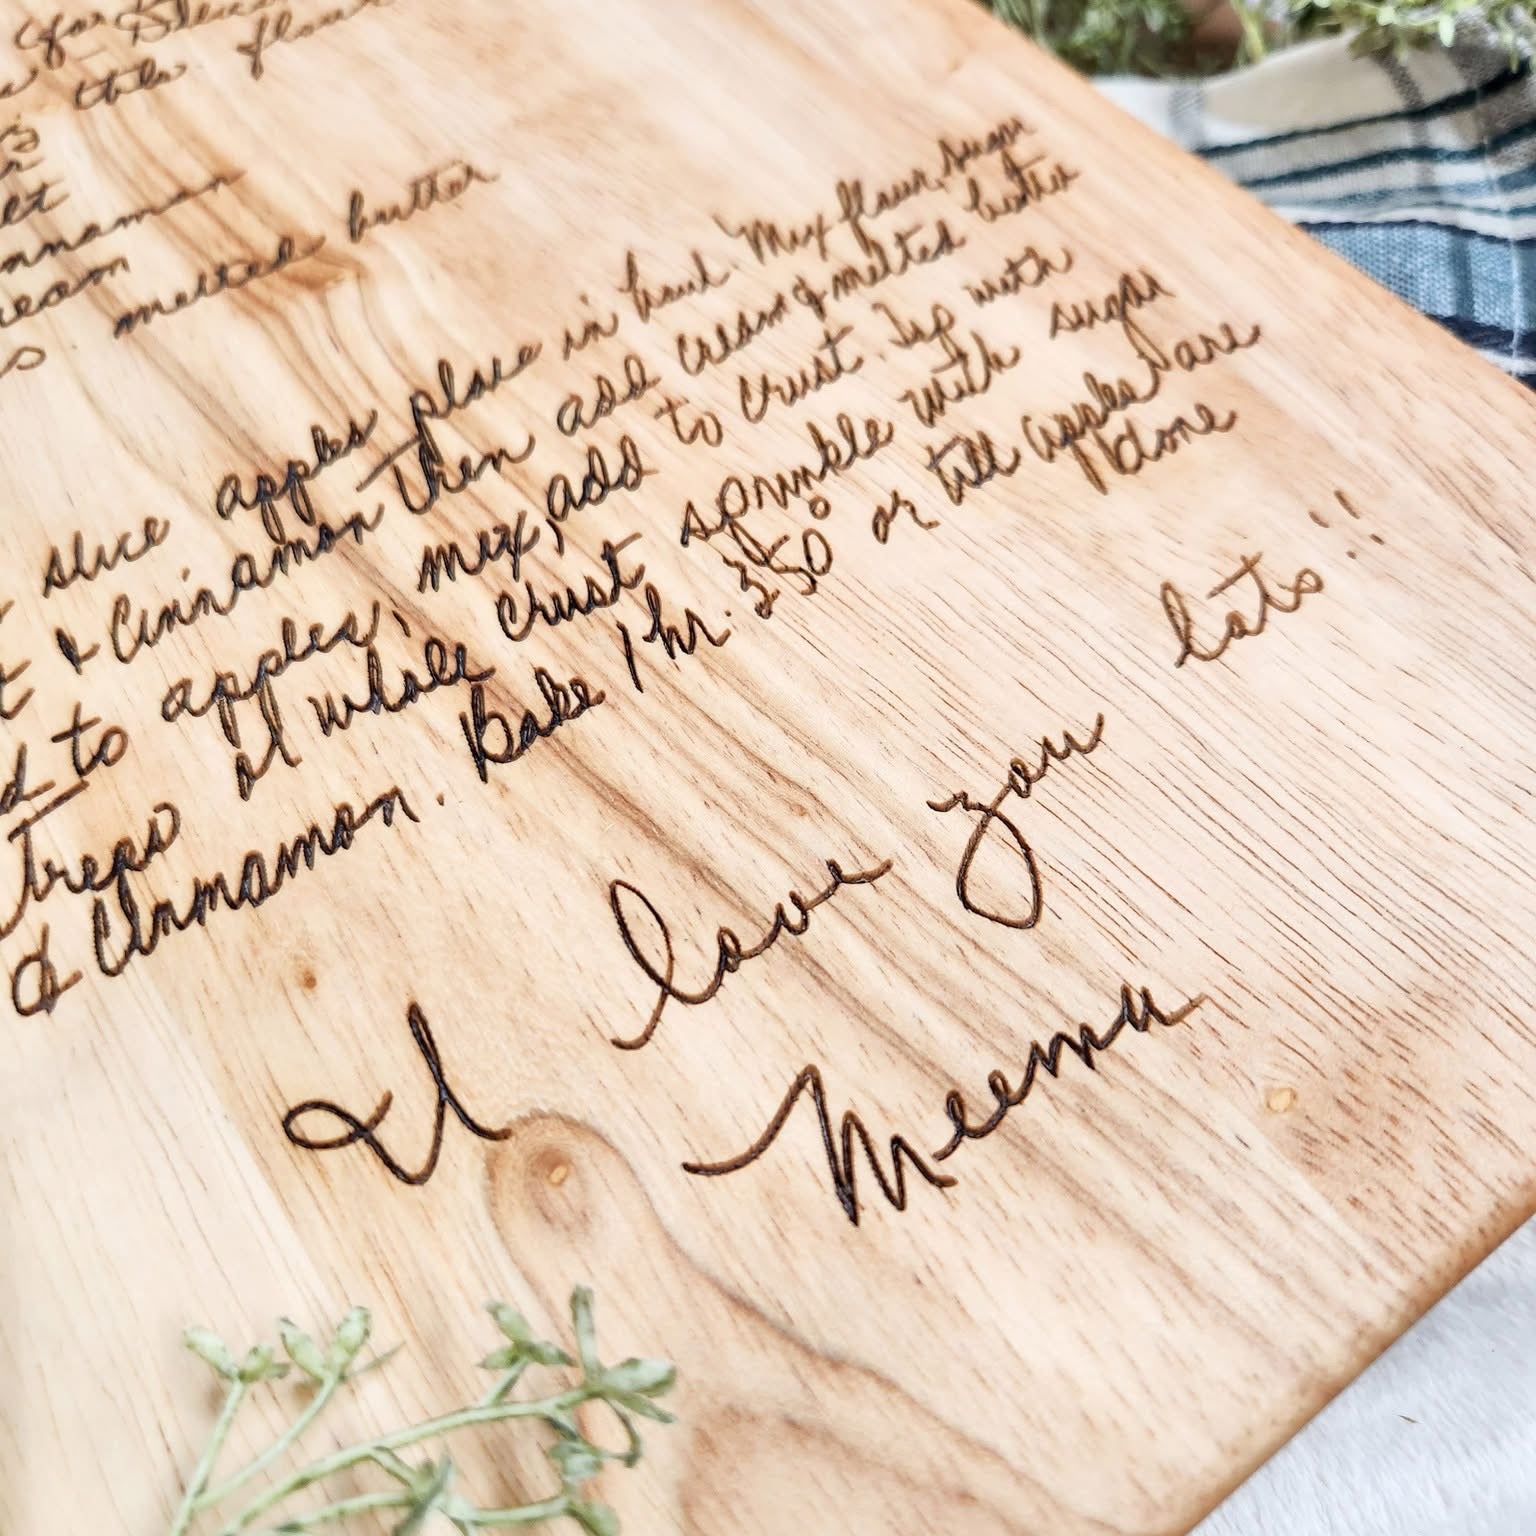 (for
tbls flour
melted butter
slice apples place in bowl. Mix flour, sugar
& Cinnamon then add cream & melted butter
to apples, mix, add to crust. Top with
Treas or whole crust sprinkle with sugar
& Cinnamon. Bake 1 hr. 350 or till apples are
done
lots !!
I love you
Meema